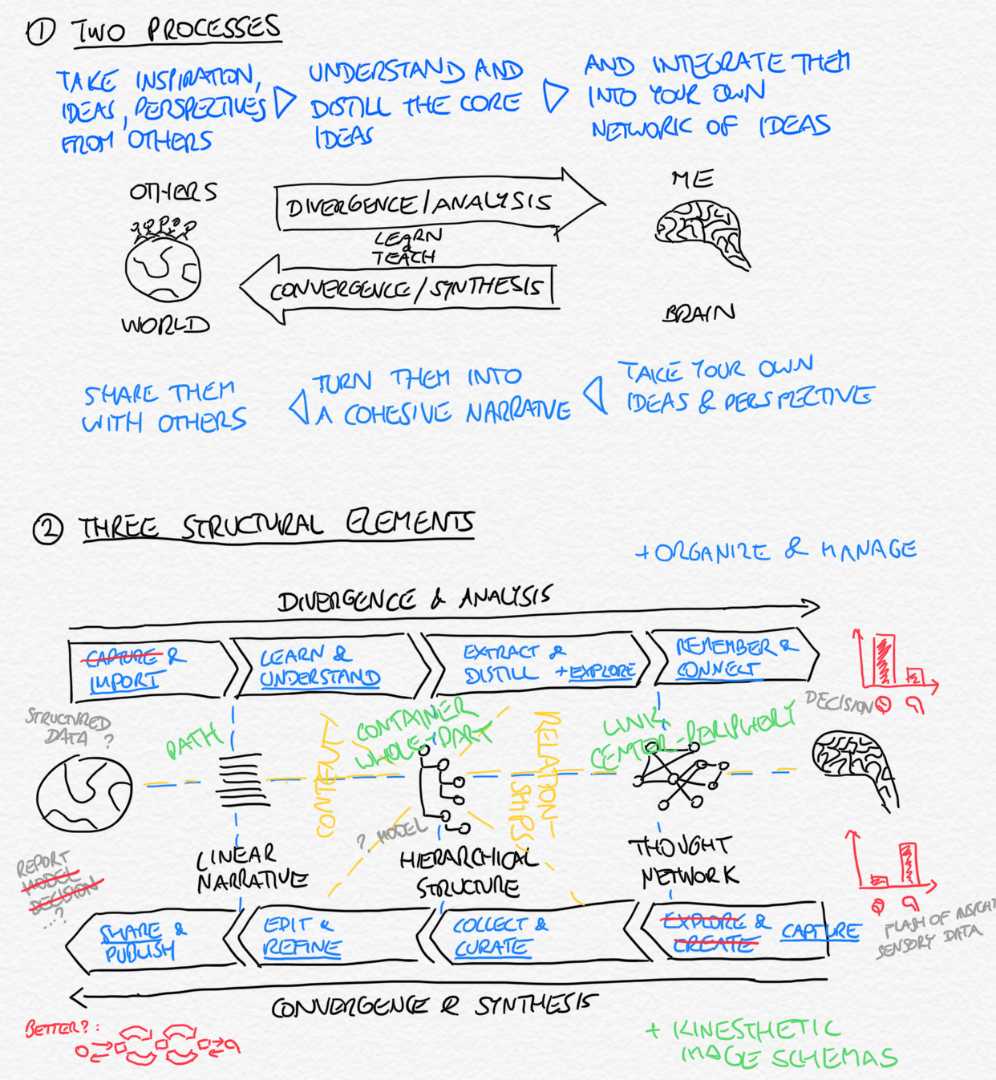 ① TWO PROCESSES
TAKE INSPIRATION,
IDEAS, PERSPECTIVES
FROM OTHERS
UNDERSTAND AND
DISTILL THE CORE
IDEAS
AND INTEGRATE THEM
INTO YOUR OWN
NETWORK OF IDEAS
OTHERS
WORLD
DIVERGENCE/ANALYSIS
LEARN
&
TEACH
CONVERGENCE/SYNTHESIS
ME
BRAIN
SHARE THEM
WITH OTHERS
TURN THEM INTO
A COHESIVE NARRATIVE
TAKE YOUR OWN
IDEAS & PERSPECTIVE
② THREE STRUCTURAL ELEMENTS
+ ORGANIZE & MANAGE
DIVERGENCE & ANALYSIS
CAPTURE &
IMPORT
LEARN &
UNDERSTAND
EXTRACT &
DISTILL + EXPLORE
REMEMBER &
CONNECT
DECISION
STRUCTURED
DATA ?
PATH
CONTENT
CONTAINER
WHOLE-PART
RELATION-
SHIPS
LINK
CENTER-PERIPHERY
? MODEL
LINEAR
NARRATIVE
HIERARCHICAL
STRUCTURE
THOUGHT
NETWORK
REPORT
MODEL
DECISION
...?
SHARE &
PUBLISH
EDIT &
REFINE
COLLECT &
CURATE
EXPLORE &
CREATE
CAPTURE
FLASH OF INSIGHT
SENSORY DATA
CONVERGENCE & SYNTHESIS
BETTER?:
+ KINESTHETIC
IMAGE SCHEMAS